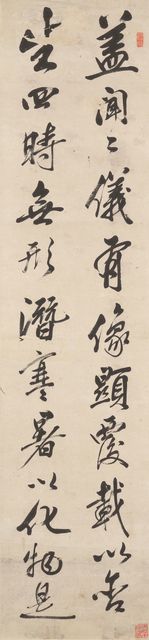 盖闻二仪有像顯覆載以含
坐四時無形潛寒暑以化物是